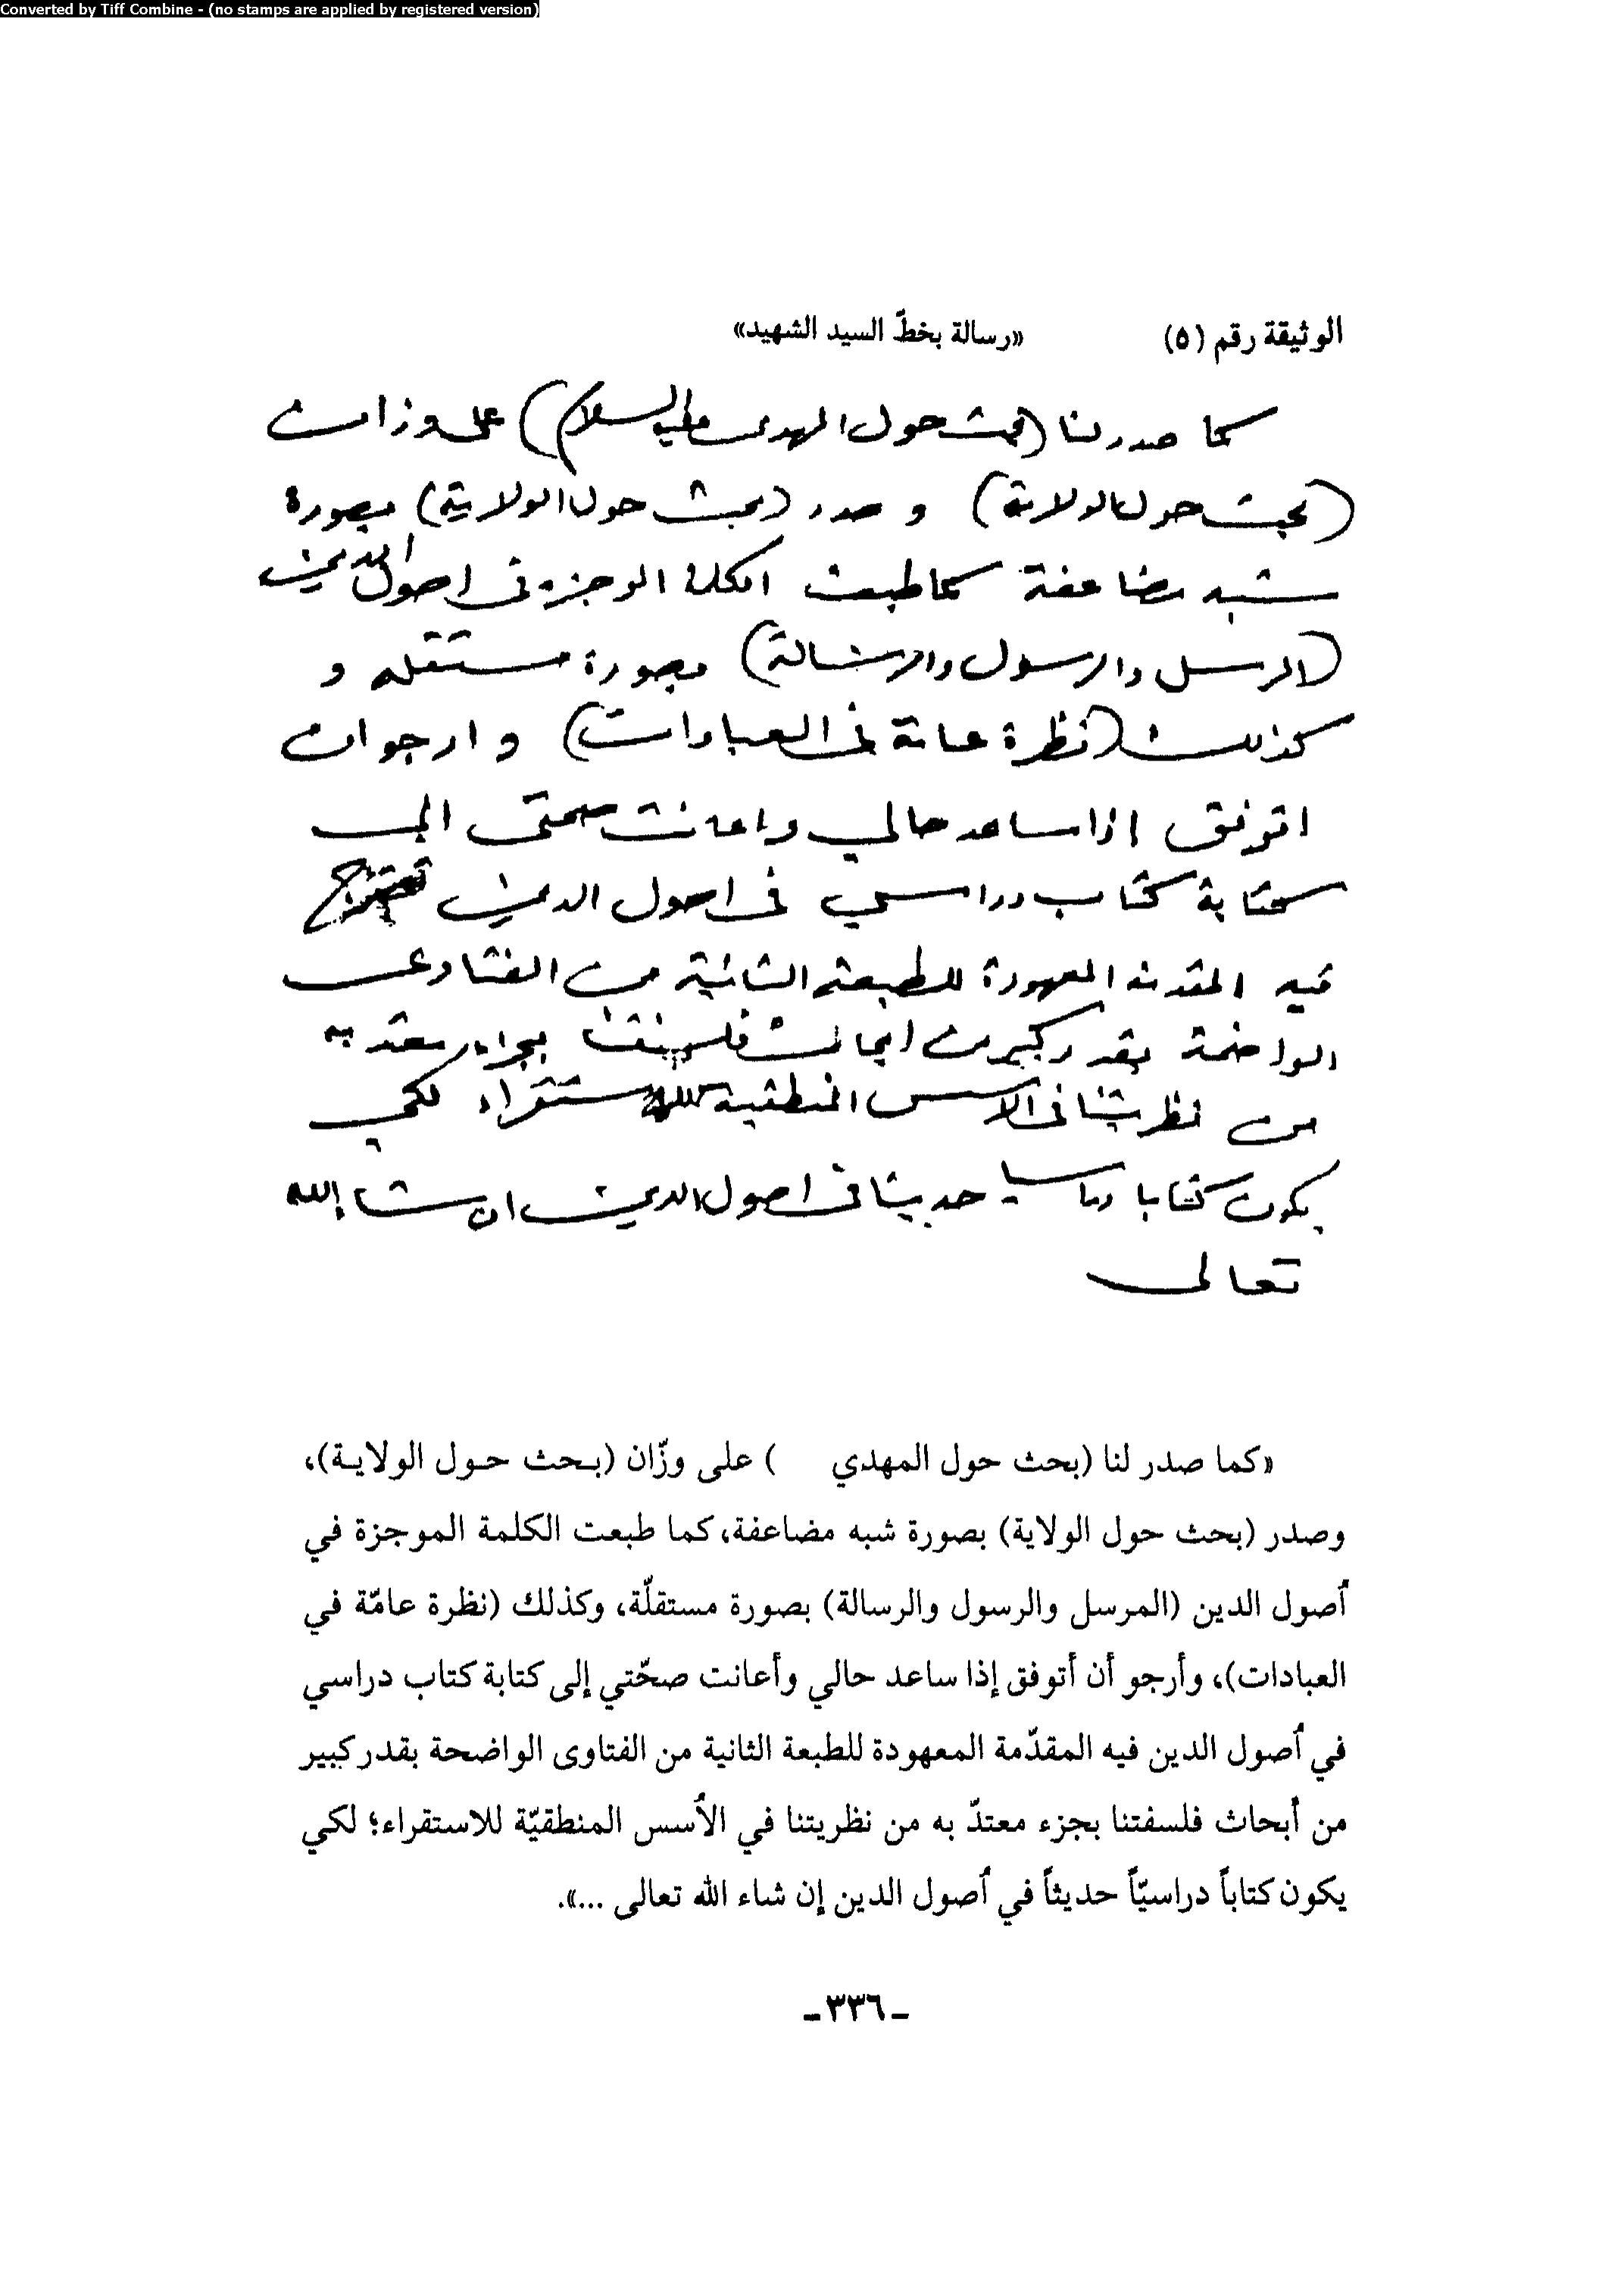 Converted by Tiff Combine - (no stamps are applied by registered version)
الوثيقة رقم (٥) «رسالة بخطّ السيد الشهيد»
كما صدر لنا (بحث حول المهدي عليه السلام) على وزان
(بحث حول الولاية) و صدر (بحث حول الولاية) بصورة
شبه مضاعفة كما طبعت الكلمة الموجزة في اصول الدين
(المرسل والرسول والرسالة) بصورة مستقلة و
كذلك (نظرة عامة في العبادات) و ارجو ان
اتوفق اذا ساعد حالي واعانت صحتي الى
كتابة كتاب دراسي في اصول الدين تمتزج
فيه المقدمة المعهودة للطبعة الثانية من الفتاوى
الواضحة بقدر كبير من ابحاث فلسفتنا بجزء معتد به
من نظريتنا في الاسس المنطقية للاستقراء لكي
يكون كتابا دراسيا حديثا في اصول الدين ان شاء الله
تعالى
«كما صدر لنا (بحث حول المهدي ) على وزّان (بحث حول الولاية)،
وصدر (بحث حول الولاية) بصورة شبه مضاعفة، كما طبعت الكلمة الموجزة في
أصول الدين (المرسل والرسول والرسالة) بصورة مستقلّة، وكذلك (نظرة عامّة في
العبادات)، وأرجو أن أتوفق إذا ساعد حالي وأعانت صحّتي إلى كتابة كتاب دراسي
في أصول الدين فيه المقدّمة المعهودة للطبعة الثانية من الفتاوى الواضحة بقدر كبير
من أبحاث فلسفتنا بجزء معتدّ به من نظريتنا في الأسس المنطقيّة للاستقراء؛ لكي
يكون كتاباً دراسيّاً حديثاً في أصول الدين إن شاء الله تعالى ...».
ـ ٣٣٦ ـ